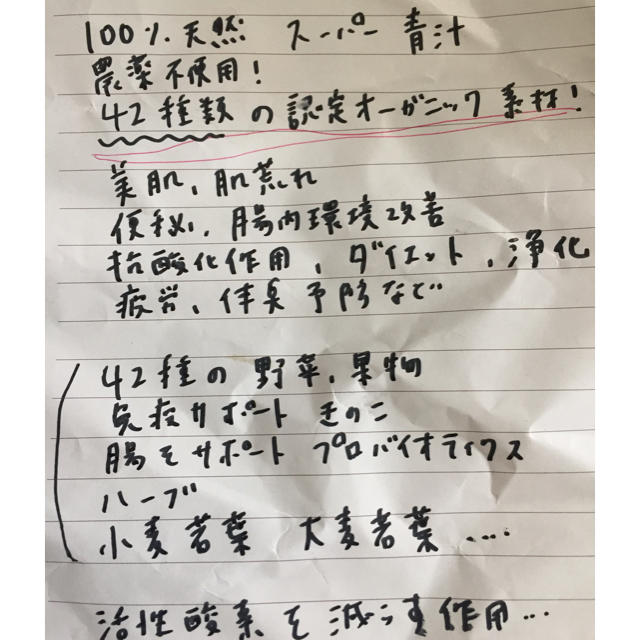 100% 天然 スーパー 青汁
農薬不使用!
42種類の認定オーガニック素材!
美肌、肌荒れ
便秘、腸内環境改善
抗酸化作用、ダイエット、浄化
疲労、体臭予防など
42種の野菜、果物
免疫サポート きのこ
腸をサポート プロバイオティクス
ハーブ
小麦若葉 大麦若葉 ....
活性酸素を減らす作用...